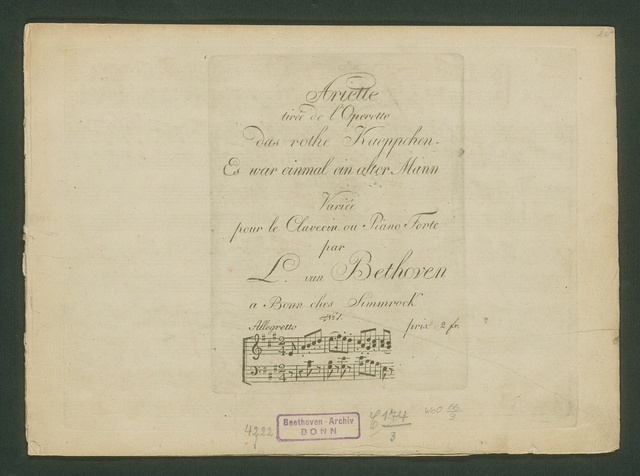 Ariette
tirée de l'Operette
das rothe Kaeppchen.
Es war einmal ein alter Mann
Variée
pour le Clavecin ou Piano Forte
par
L. van Bethoven
a Bonn ches Simmrock
N.º 1.
Allegretto prix 2 fr.
4222
Beethoven-Archiv
BONN
C 174
3
WoO 66
3